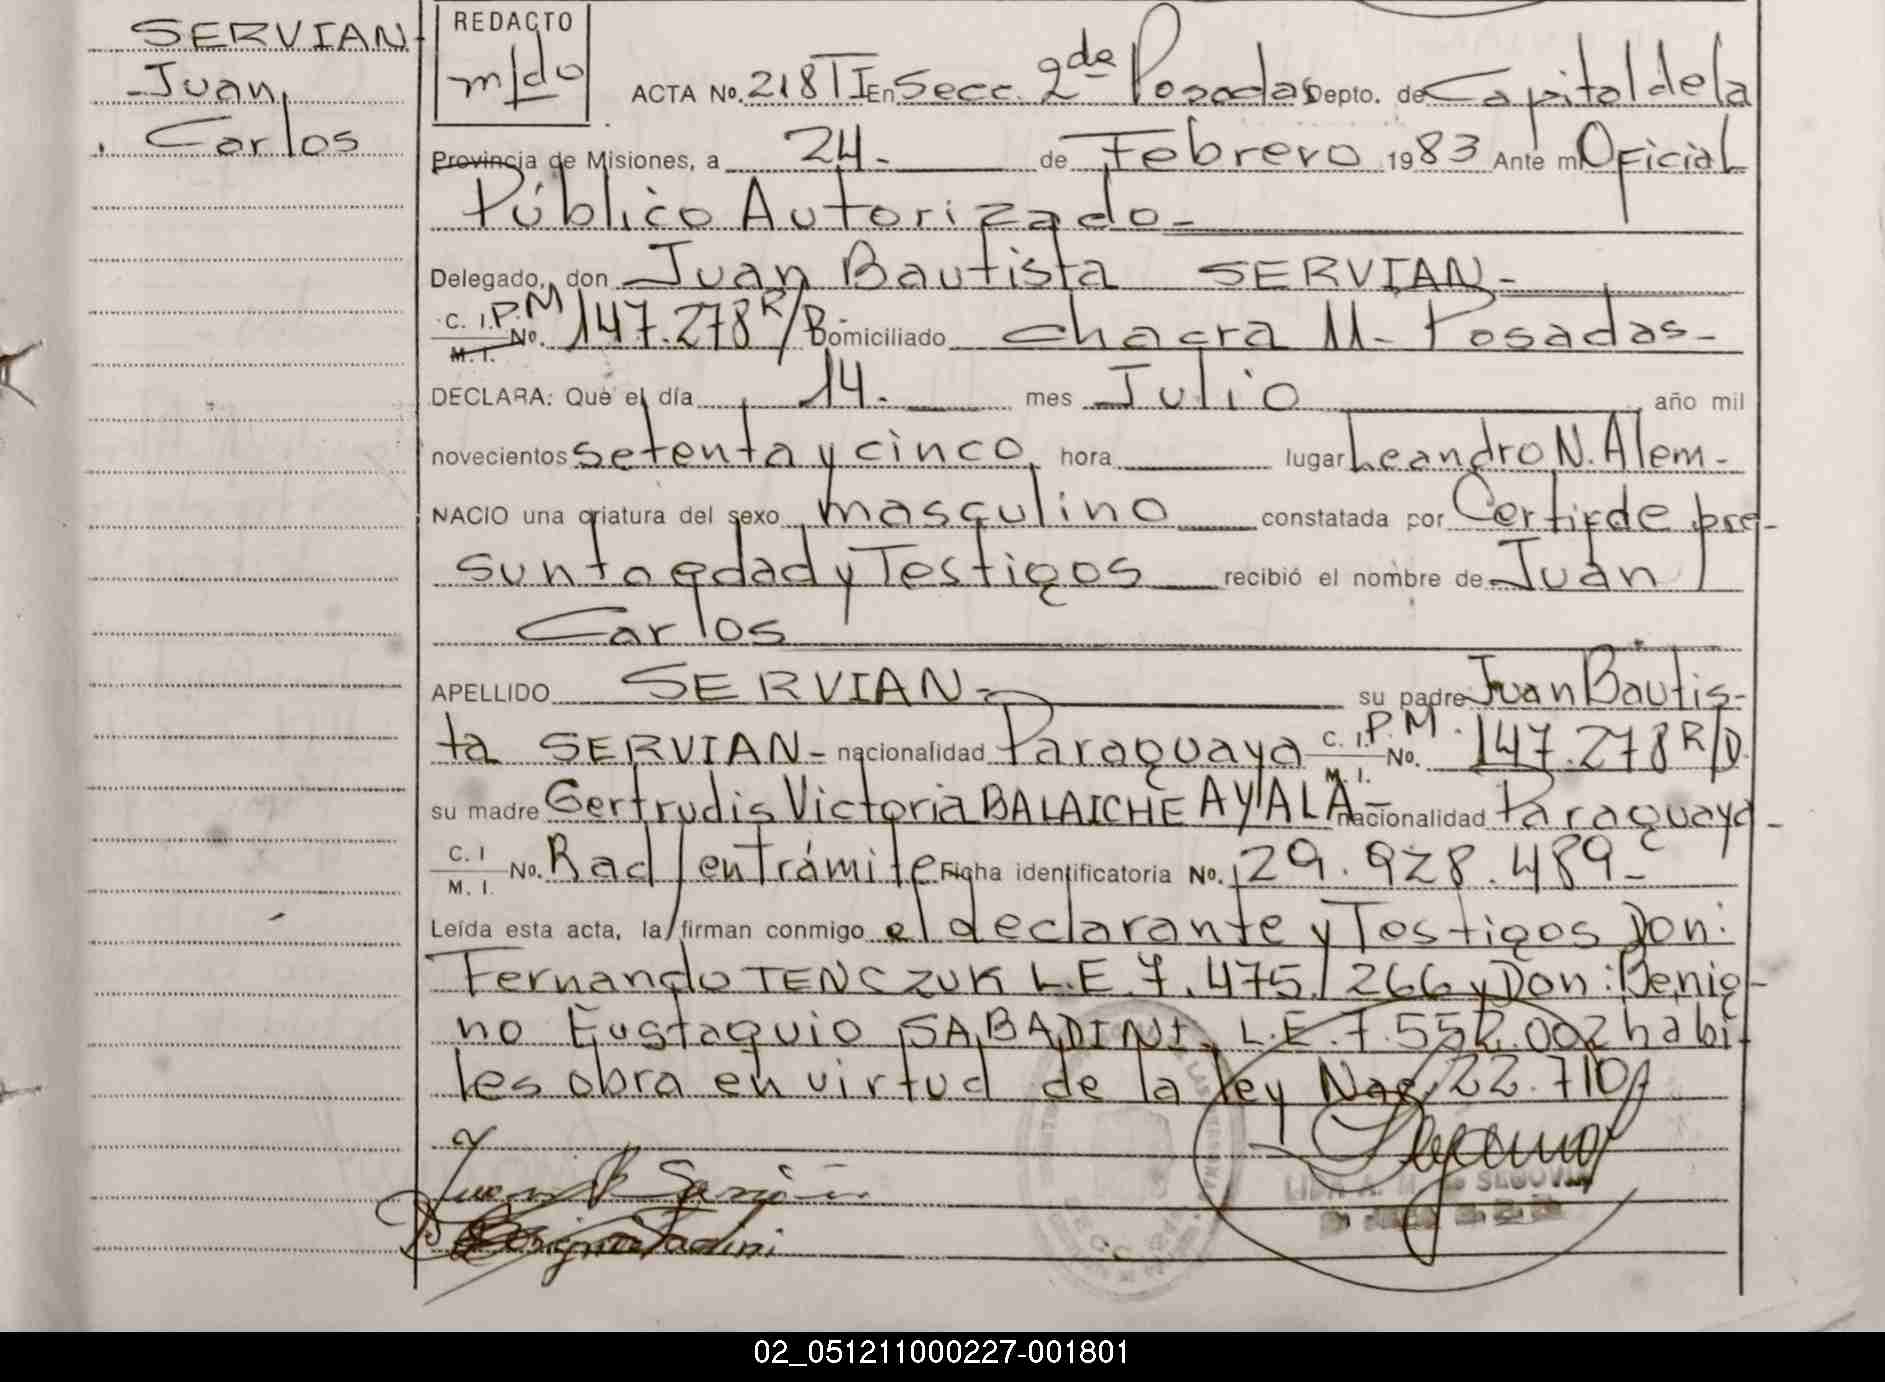 SERVIAN
Juan
Carlos
REDACTO
mfdo
ACTA No. 218 TI En Secc. 2da Posadas Depto. de Capital de la
Provincia de Misiones, a 24.- de Febrero 1983 Ante mi Oficial
Público Autorizado-
Delegado, don Juan Bautista SERVIAN-
C. I. P.M
M. I. No. 147.278 R/B Domiciliado chacra 11- Posadas-
DECLARA: Que el día 14.- mes Julio año mil
novecientos setenta y cinco hora lugar Leandro N. Alem-
NACIO una criatura del sexo masculino constatada por Certif de pre-
sunta edad y Testigos recibió el nombre de Juan
Carlos
APELLIDO SERVIAN- su padre Juan Bautis-
ta SERVIAN- nacionalidad Paraguaya C. I. P.M. M. I. No. 147.278 R/D.
su madre Gertrudis Victoria BALAICHE AYALA- nacionalidad Paraguaya-
C. I
M. I. No. Rad/en trámite Ficha identificatoria No. 29.928.489-
Leída esta acta, la firman conmigo el declarante y Testigos Don:
Fernando TENCZUK L.E. 7.475.266 y Don: Benig-
no Eustaquio SABADINI L.E. 7.552.002 habi-
les obra en virtud de la ley Nac. 22.710
Juan B Servian
SEGOVIA
02_051211000227-001801